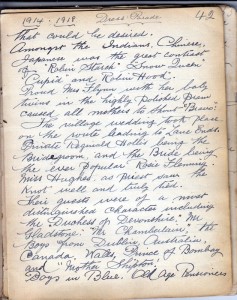 1914 - 1918 Dress Parade 42
that could be desired.
Amongst the Indians, Chinese,
Japanese was the great contrast
of "Robin Starch" "Snow Queen"
"Cupid" and Robin Hood.
Proud Mrs Flynn with her baby
twins in the highly polished Pram
caused all mothers to shout "Bravo".
The village wedding took place
on the route leading to Lane Ends.
Private Reginald Hollis being the
Bridegroom, and the Bride being
the ever popular Rosie Fleming.
Miss Hughes as Priest saw the
Knot well and truly tied.
Their guests were of a most
distinguished character including
the Duchess of Devonshire. Mr
Gladstone. Mr Chamberlain, the
Boys from Dublin, Australia,
Canada, Wales, Prince of Bombay
and "Mother Shipton"
"Boys in Blue. Old Age Pensioners